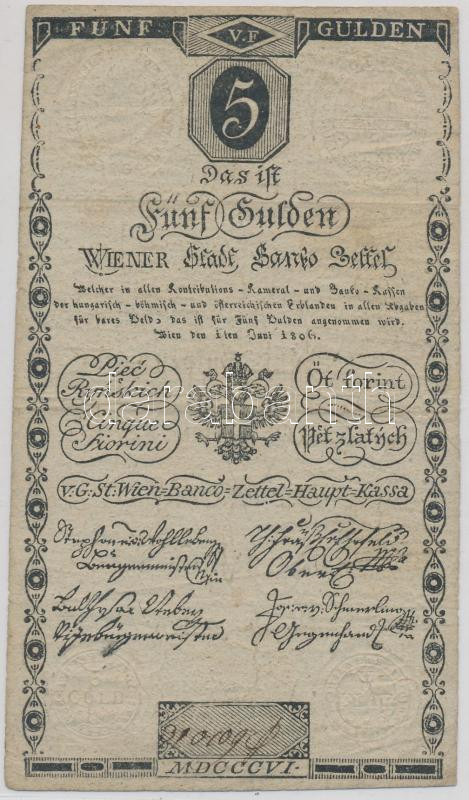 FÜNF V.F GULDEN
5
Das ist
Fünf Gulden
WIENER Stadt Banko Zettel
Welcher in allen Kontributions-Kameral-und Banko-Kassen
der hungarisch-böhmisch-und österreichischen Erblanden in allen Abgaben
für bares Geld, das ist für Fünf Gulden angenommen wird.
Wien den 1ten Juni 1806.
Pięć
Ryńskich
Öt forint
Cinque
Fiorini
Pět zlatých
darabanth
V.G.St.Wien=Banco=Zettel=Haupt=Kassa
MDCCCVI